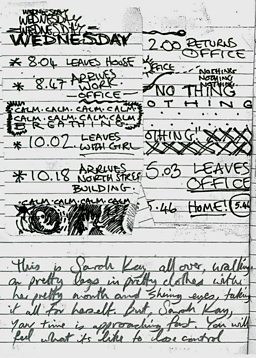 WEDNESDAY
WEDNESDAY
WEDNESDAY
WEDNESDAY
* 8.04 LEAVES HOUSE
* 8.47 ARRIVES WORK OFFICE
CALM. CALM. CALM. CALM
CALM. CALM. CALM. CALM
BREATHING
* 10.02 LEAVES WITH GIRL
* 10.18 ARRIVES NORTH STREET BUILDING.
CALM. CALM. CALM. CALM
2.00 RETURNS OFFICE
OFFICE
NOTHING
NOTHING
NOTHING
"NO THING
OTHING
OTHING"
5.03 LEAVES OFFICE
5.46 HOME! 5.46
This is Sarah Kay all over, walking
on pretty legs in pretty clothes with
her pretty mouth and shining eyes, taking
it all for herself. But, Sarah Kay,
your time is approaching fast. You will
feel what it's like to lose control